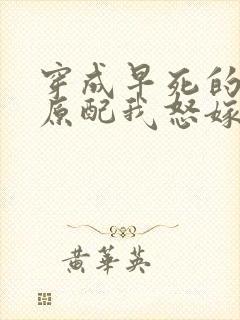 穿成早死的
原配我怒嫁
黄华英